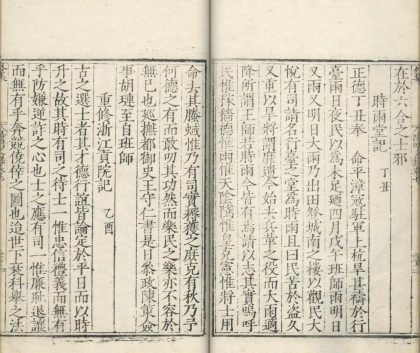 在於六合之士邪
時雨堂記 丁丑
正德丁丑奉 命平漳寇駐軍上杭旱甚禱於行
臺雨日夜民以為未足迺四月戊午班師雨明日
又雨又明日大雨乃出田登城南之樓以觀民大
悅有司請名行臺之堂為時雨且曰民苦於盜久
又重以旱將謂靡遺今始去兵革之役而大雨適
降所謂王師若時雨今皆有焉請以志其實嗚呼
民惟稼穡德惟雨惟天陰騭惟皇克憲惟將士用
命去其螣蜮惟乃有司實耨獲之庶克有秋乃予
何德之有而敢叨其功然而樂民之樂亦不容於
無記也巡撫都御史王守仁書是日參政陳策僉
事胡璉至自班師
重修浙江貢院記 乙酉
古之選士者其才德行誼皆論定於平日而以時
升之故其時有司之待士一惟忠信禮義而無有
乎防嫌逆詐之心也士之應有司一惟廉恥退讓
而無有乎奔競僥倖之圖也迨世下衰科舉之法